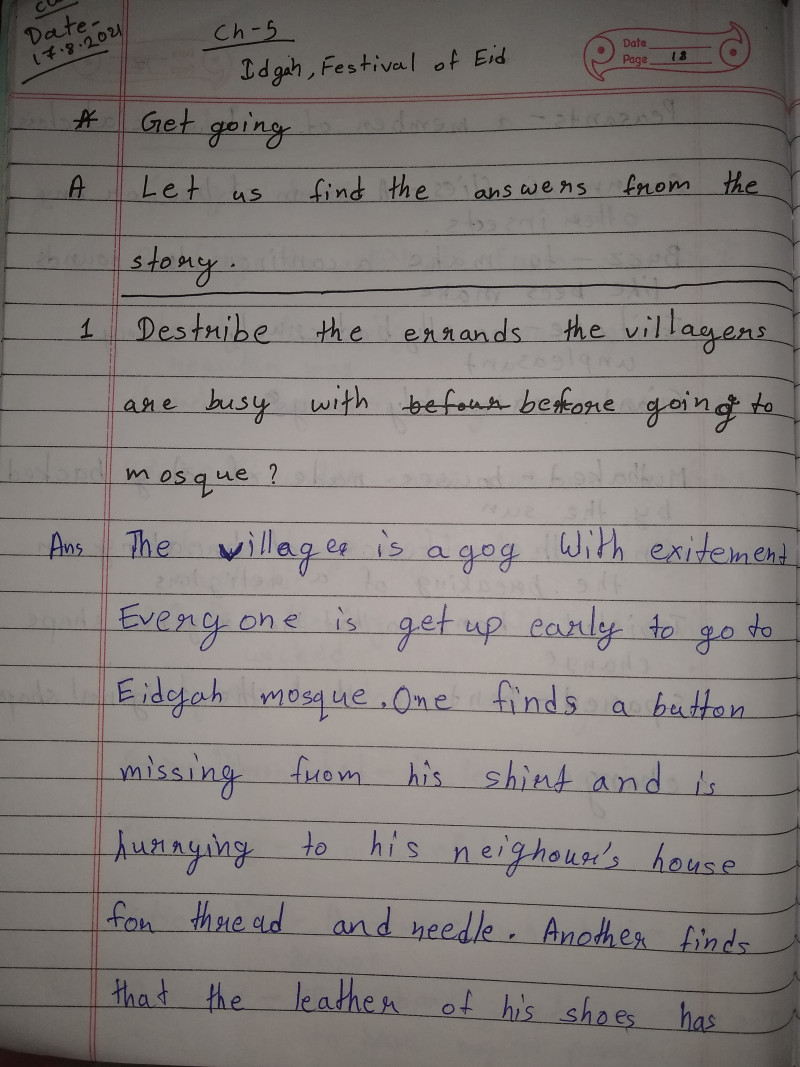 Date-
17.8.2021
Ch-5
Idgah, Festival of Eid
Date
Page 18
Get going
A Let us find the answers from the
story.
1 Destribe the errands the villagers
are busy with before going to
mosque?
Ans The village is agog With exitement
Every one is get up early to go to
Eidgah mosque. One finds a button
missing from his shirt and is
hurrying to his neighour's house
for thread and needle. Another finds
that the leather of his shoes has